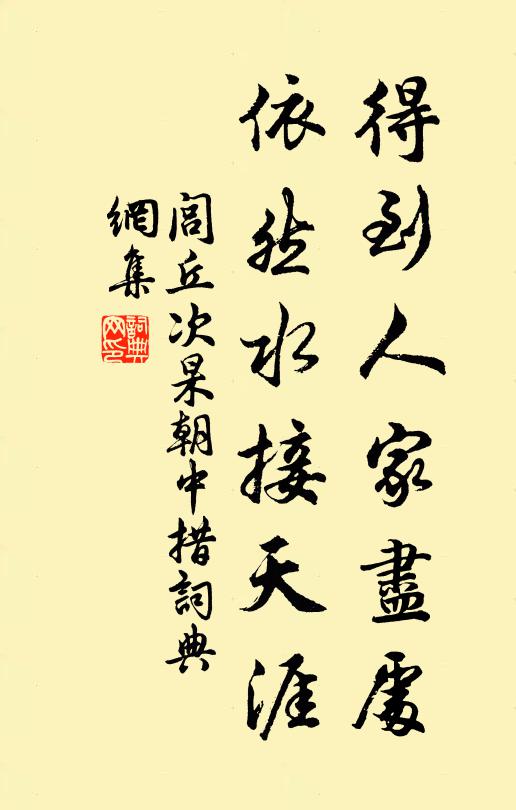 得到人家盡處
依然水接天涯
閭丘次杲朝中措詞典
網集
詞典網印